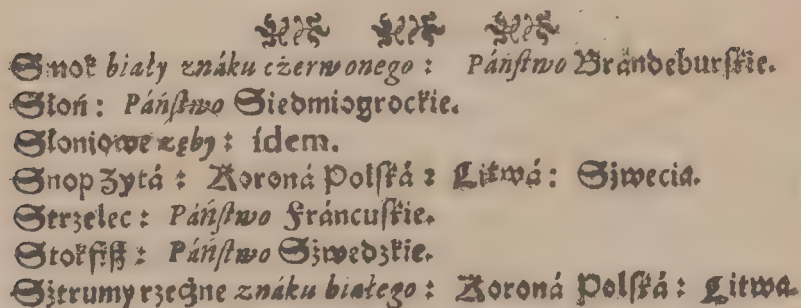 Smok biały znáku czerwonego : Páńſtwo Brándeburſkie.
Słoń : Páńſtwo Siedmiogrockie.
Słoniowe zęby : idem.
Snop Zytá : Koroná Polſká : Litwá : Sżwecia.
Strzelec : Páńſtwo Fráncuſkie.
Stokfiſz : Páńſtwo Sżwedzkie.
Sżtrumy rzecżne znáku białego : Koroná Polſká : Litwa.